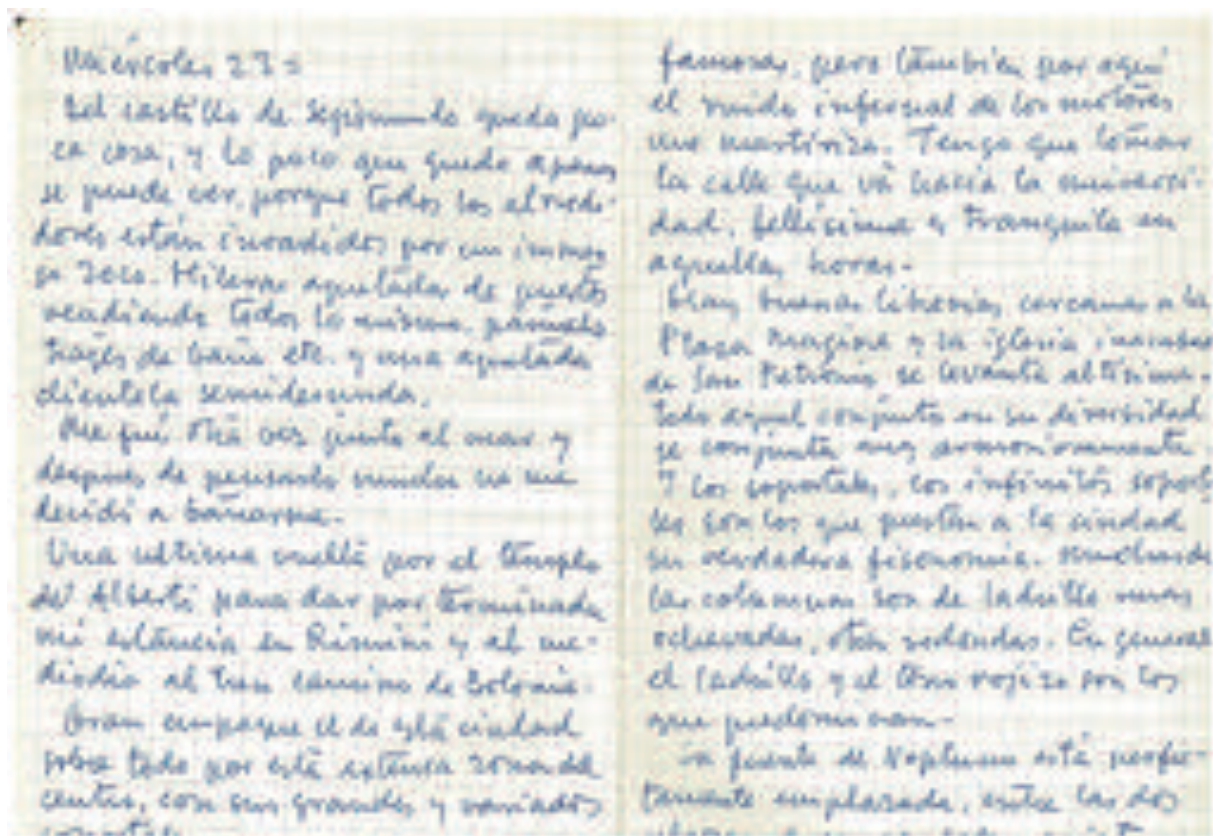 Miércoles 23=
Del castillo de Segismundo queda po-
ca cosa, y lo poco que queda apenas
se puede ver, porque todos los alrede-
dores están invadidos por un inmen
so zoco. Hileras apretadas de puestos
vendiendo todos lo mismo, pañuelos
trajes de baño etc. y una apretada
clientela semidesnuda.
Me fuí otra vez junto al mar y
después de pensarlo mucho no me
decidí a bañarme.
Una ultima vuelta por el templo
de Alberti para dar por terminada
mi estancia en Rimini y al me-
diodia al tren camino de Bolonia.
Gran empaque el de esta ciudad
sobre todo por esta extensa zona del
centro, con sus grandes y variados
soportales
famosas, pero también por aquí
el ruido infernal de los motores
me martiriza. Tengo que tomar
la calle que vá hacia la universi-
dad, bellisima y tranquila en
aquellas horas.
Hay buenas librerias cercanas a la
Plaza Magiore y la iglesia inmensa
de San Petronio se levanta altisima.
todo aquel conjunto en su diversidad
se conjunta muy armoniosamente
Y los soportales, los infinitos soporta
les son los que prestan a la ciudad
su verdadera fisonomia. muchas de
las columnas son de ladrillo unas
ochavadas, otras redondas. En general
el ladrillo y el tono rojizo son los
que predominan-
La fuente de Neptuno está perfec-
tamente emplazada, entre las dos